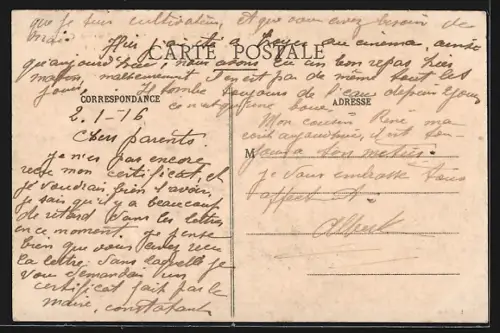 CARTE POSTALE
CORRESPONDANCE
ADRESSE
M
2.1-16
Chers parents.
je n'es pas encore
recu mon certificat, et
je voudrai bien l'avoir,
je sais qu'il y a beaucoup
de retard dans les lettres
en ce moment. je pense
bien que vous avez recu
la lettre dans laquelle je
vous demandai un
certificat fait par le
maire, constatant
que je suis cultivateur, et que vous avez besoin de
moi. Hier j'ai été a au cinema, ainsi
qu'aujourd'hui, nous avons eu un bon repas, pas
malheureusement il n'en est pas de même tout les
jours. Il tombe toujours de l'eau depuis 4 jours
ce n'est qu'une boue.
Mon cousin René ma
ecrit aujourd'hui, il est tou-
jours a son metier.
je vous embrasse tous
affect
Albert